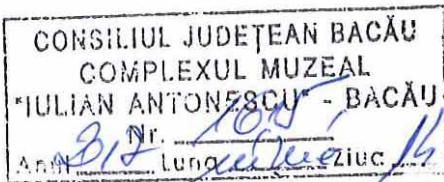 CONSILIUL JUDEȚEAN BACĂU
COMPLEXUL MUZEAL
"IULIAN ANTONESCU" - BACĂU
Nr. 1015
Anul Luna Ziua 14